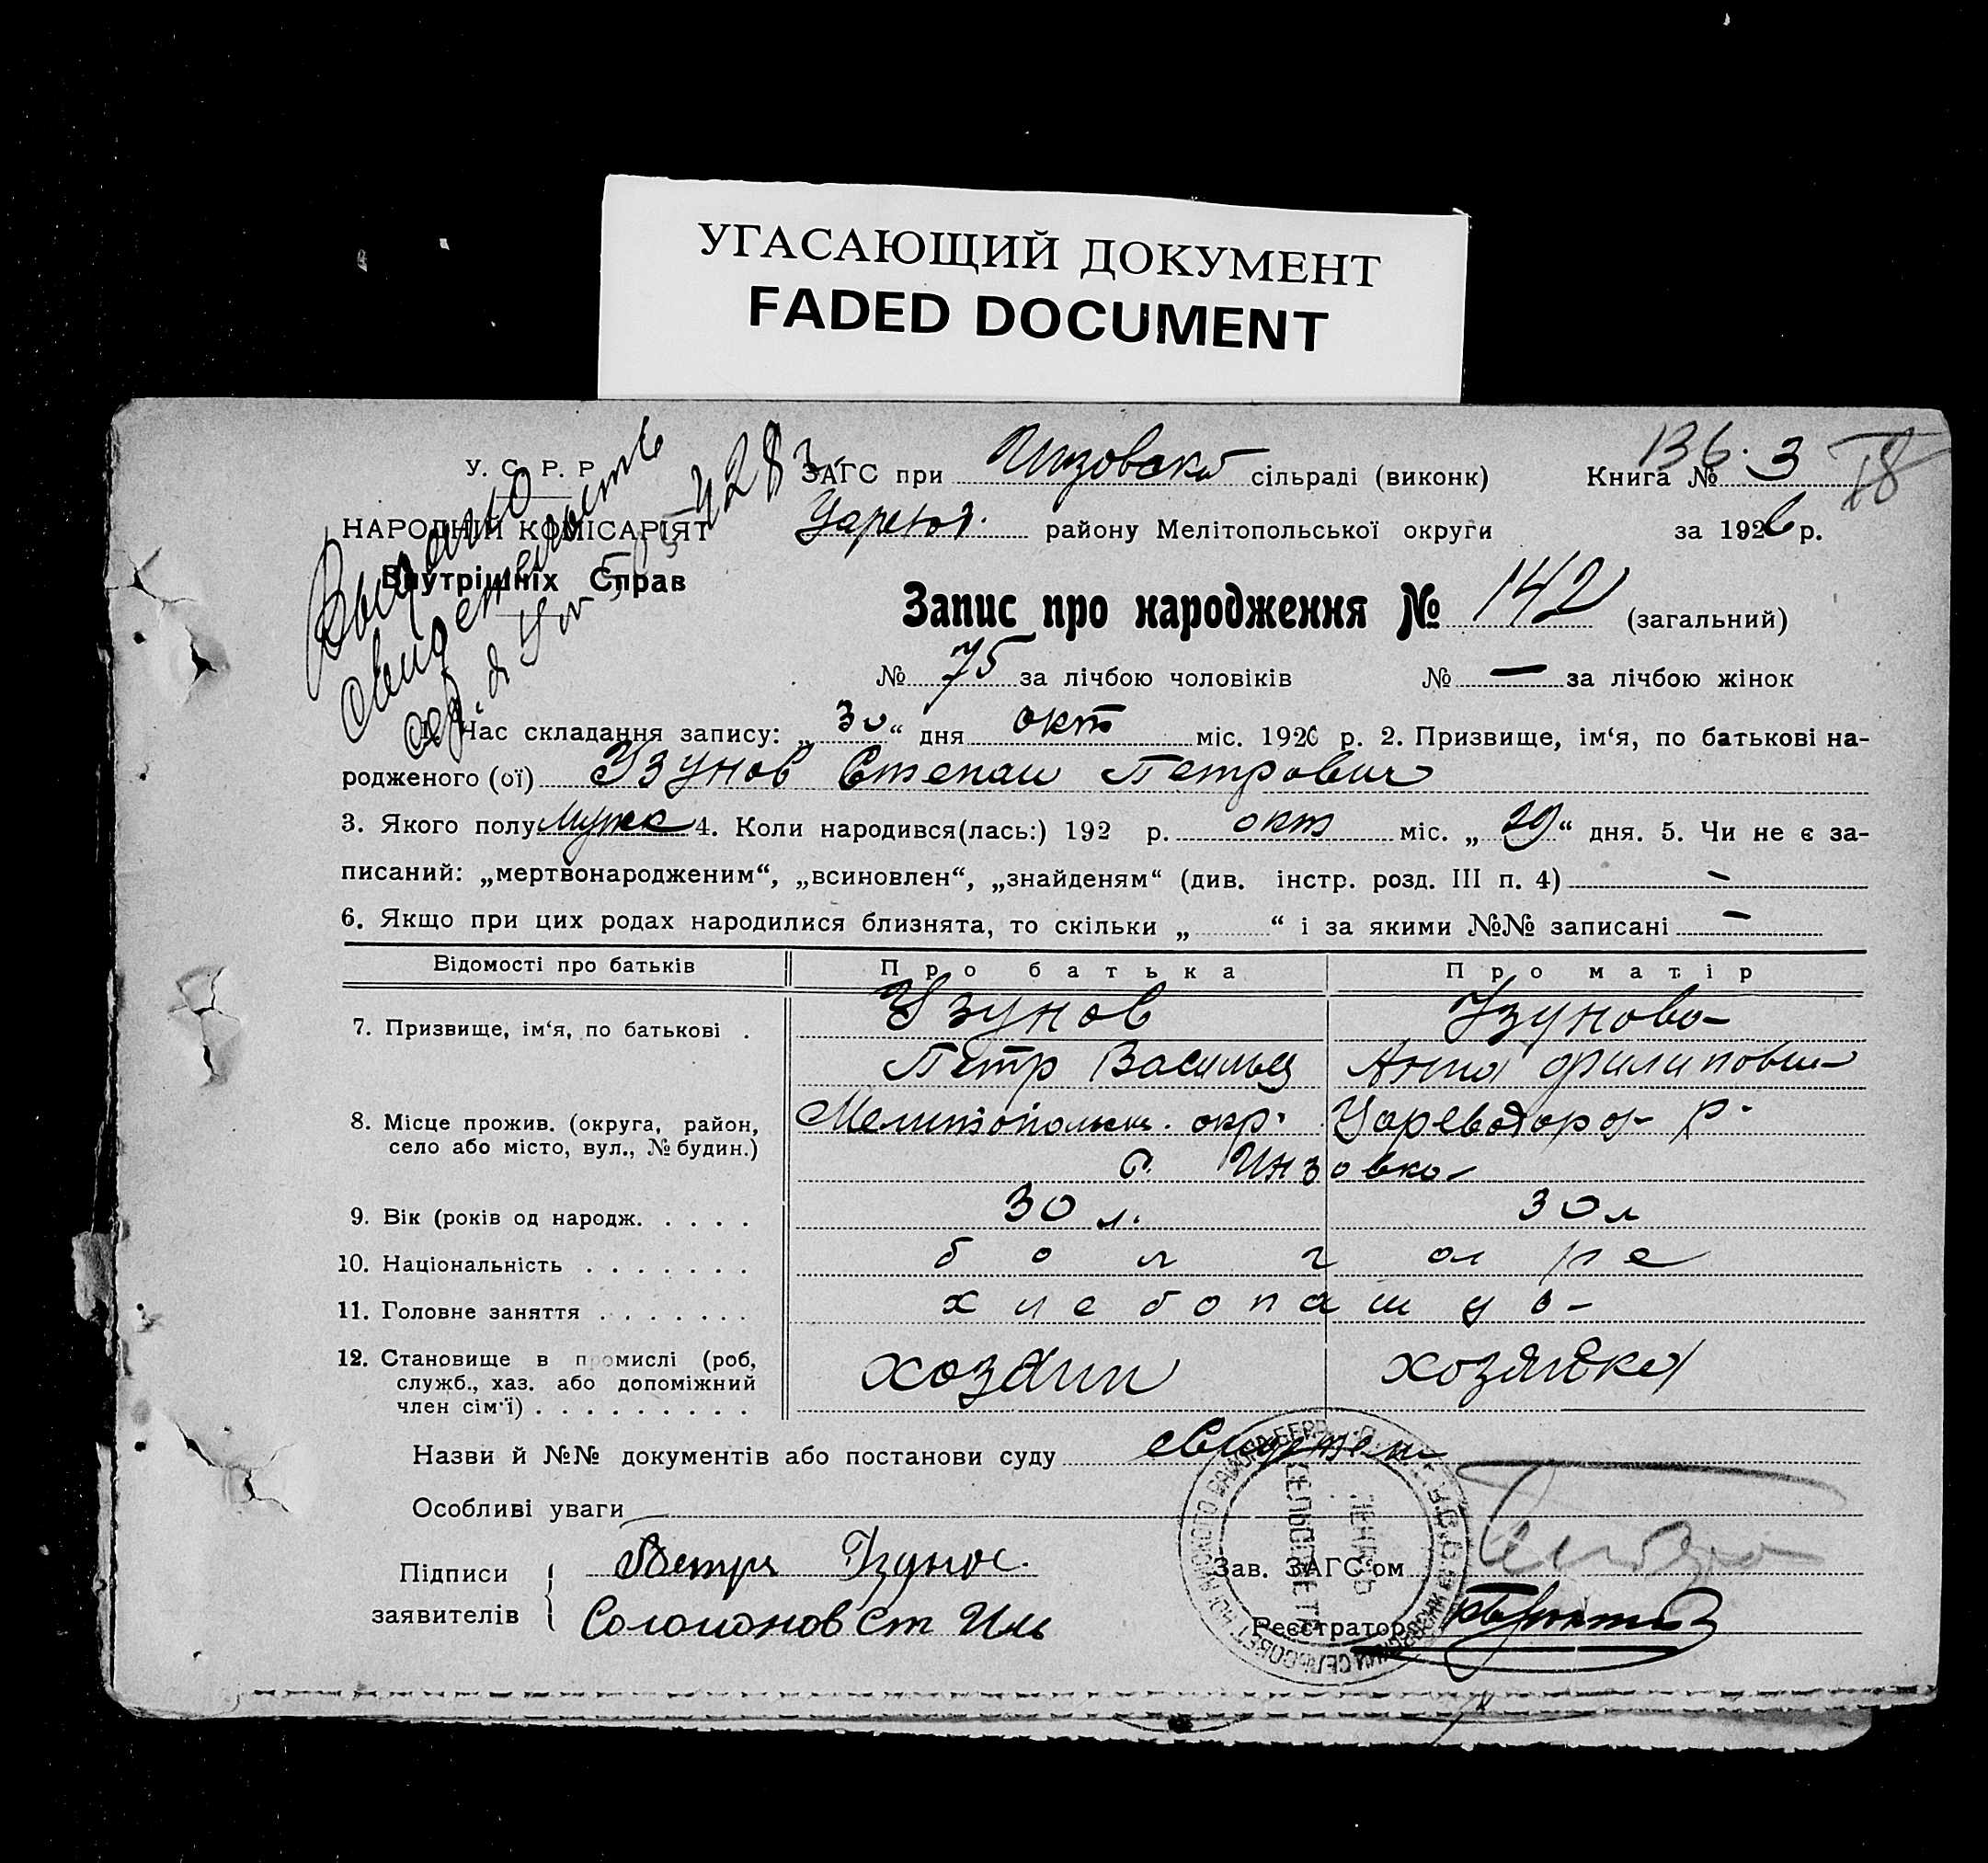 УГАСАЮЩИЙ ДОКУМЕНТ
FADED DOCUMENT
У. С. Р. Р.
НАРОДНІЙ КОМІСАРІЯТ
Внутрішніх Справ
Выдано
свидетельство
ЗАГС при Инзовской сільраді (виконк)
Книга № 136. 3
18
Царев. району Мелітопольської округи
за 1926 р.
Запис про народження № 142 (загальний)
№ 75 за лічбою чоловіків № — за лічбою жінок
1. Час складання запису: „30“ дня окт міс. 1926 р. 2. Призвище, ім‘я, по батькові на-
родженого (ої) Узунов Степан Петрович
3. Якого полу мужск 4. Коли народився(лась:) 192 р. окт міс. „29“ дня. 5. Чи не є за-
писаний: „мертвонародженим“, „всиновлен“, „знайденям“ (див. інстр. розд. III п. 4) –
6. Якщо при цих родах народилися близнята, то скільки „ “ і за якими №№ записані –
Відомості про батьків Про батька Про матір
7. Призвище, ім‘я, по батькові . Узунов Узунова
Петр Василь Анна Филиповн
8. Місце прожив. (округа, район, село або місто, вул., № будин.) Мелитопольск. окр. Царевод р.
с. Инзовка
9. Вік (років од народж. . . . . 30 л. 30 л
10. Національність . . . . . . . болгаре
11. Головне заняття . . . . . . . хлебопаш
12. Становище в промислі (роб, служб., хаз. або допоміжний член сім‘ї) . . . . . . . . . хозяин хозяйка
Назви й №№ документів або постанови суду
Особливі уваги
Підписи заявителів { Петръ Узунов.
Соломонов Ст Иль
Зав. ЗАГС‘ом
Реєстратор
СЕЛЬСОВЕТ